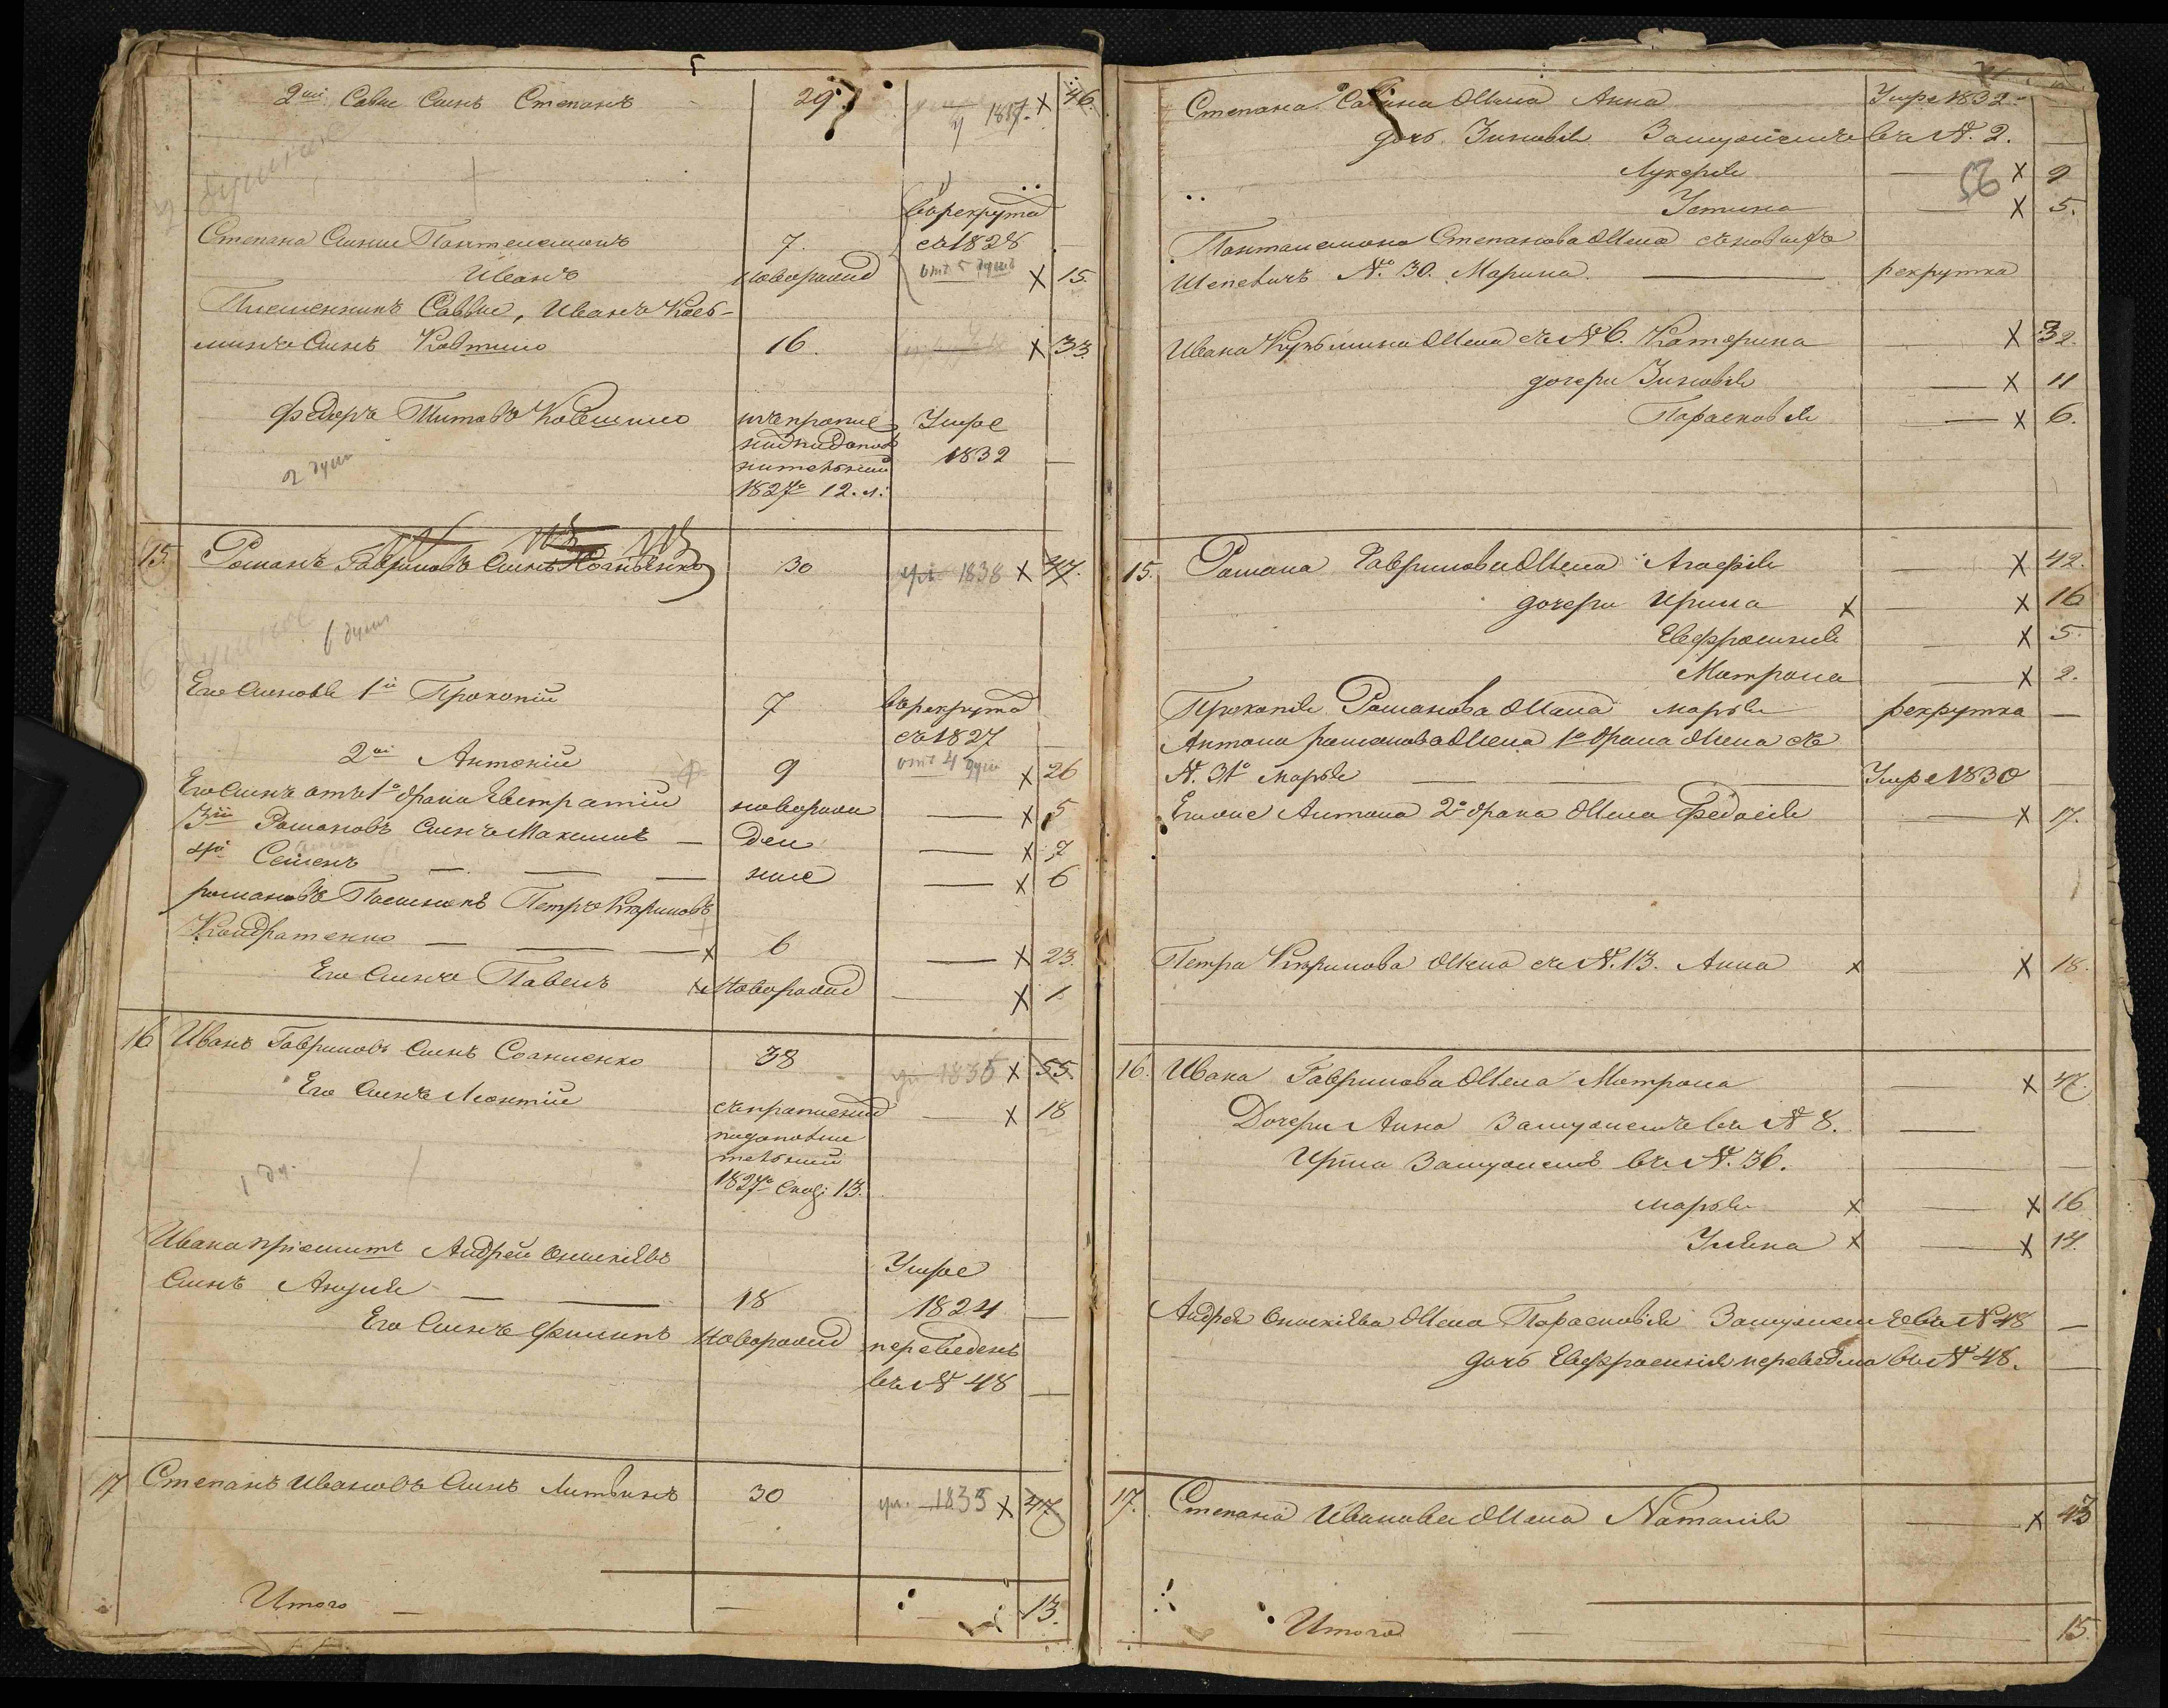 2ой Савы Сынъ Степанъ 29 1837. X 46.
Степана Сыны Пантелемонъ 7. врекрута
съ 1828
отъ 5 душъ
Иванъ новорожд X 15.
Племенникъ Саввы, Иванъ Козь-
минъ Сынъ Ковтило 16. X 33.
Федоръ Титовъ Ковтило Умре
1832
1827го 12. л:
2 души
15. Романъ Гавриловъ Сынъ 30 ум. 1838 X 47.
6 душъ
Его Сыновья 1й Прокопий 7 врекрута
съ 1827
отъ 4 душ
2ой Антоний 9 X 26
Его Сынъ отъ 1го брака Евстратий новорож X 5
3й Романовъ Сынъ Максимъ — ден X 7
4й Семенъ — ные X 6
романовъ Племеникъ Петръ Кириловъ
Кондратенко — 6 X 23.
Его Сынъ Павелъ новорожд X 1
16. Иванъ Гавриловъ Сынъ 38 ум 1835 X 55.
Его Сынъ Леонтий X 18
1827го 13.
1 ду.
Ивана приемышъ Андрей
Сынъ 18 Умре
1824
Его Сынъ Филипъ новорожд переведенъ
въ № 48
17 Степанъ Ивановъ Сынъ Литвинъ 30 ум. 1835 X 47
Итого — 13.
Степана Савина Жена Анна Умре 1832.
дочь Зиновия Замужемъ въ №. 2.
Лукерия X 9
56
Устина X 5.
Пантелемона Степанова Жена
№. 30. Марина. рекрутка
Ивана Кузьмина Жена съ № 6. Катерина X 32.
дочери Зиновия X 11
Парасковия X 6.
15. Романа Гаврилова Жена Агафия X 42.
дочери Ирина X X 16
Евфросиния X 5.
Матрона X 2.
Прокопия Романова Жена марья рекрутка
Антона романова Жена 1го брака Жена съ
№. 31го марья Умре 1830
Его же Антона 2го брака Жена Федосия X 17.
Петра Кирилова Жена съ №. 13. Анна X X 18.
16. Ивана Гаврилова Жена Матрона X
Дочери Анна Замужемъ въ № 8.
Ирина Замужемъ въ №. 36.
марья X X 16
Улияна X X 14.
Андрея Жена Парасковия Замужемъ въ № 48
дочь Евфросиния переведена въ № 48.
17. Степана Иванова Жена Наталия X 43
Итого 15.